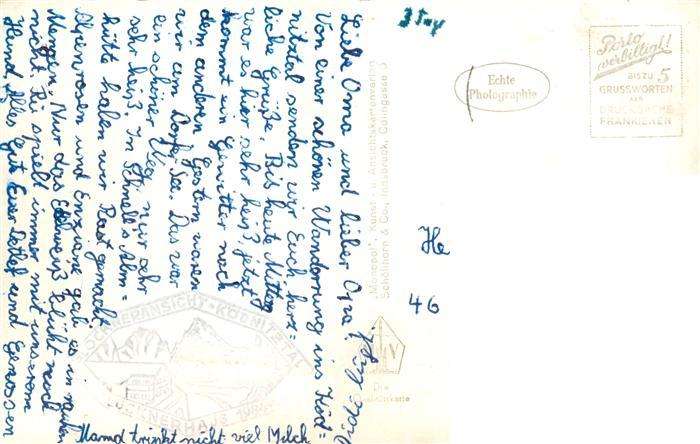 Liebe Oma und lieber Opa!
Von einer schönen Wanderung ins Ködnitztal senden wir Euch herz=
liche Grüße. Bis heute Mittag
war es hier sehr heiß, jetzt
kommt ein Gewitter nach
dem anderen. Gestern waren
wir am Dorfer See. Das war
ein schöner Weg, nur sehr
sehr heiß. In Schnell's Alm=
hütte haben wir Rast gemacht.
Alpenrosen und Enziane gab es in rauhen
Mengen. Nur das Edelweiß blüht noch
nicht. Ri spielt immer mit unserem
Hund. Alles Gute Euer Detlef und Genossen
Mamd trinkt nicht viel Milch
3 Tay
He
46
Echte
Photographie
Porto
verbilligt!
BIS ZU 5
GRUSSWORTEN
ALS
DRUCKSACHE
FRANKIEREN
"Monopol", Kunst- u. Ansichtskartenverlag
Schöllhorn & Co., Innsbruck, Colingasse 5
Die
Qualitätskarte
GLOCKNERANSICHT · KÖDNITZTAL
LUCKNERHAUS